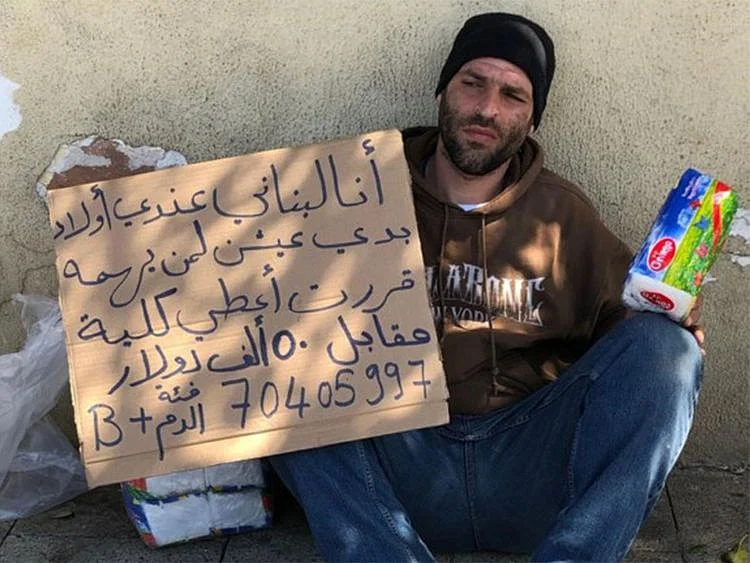 أنا لبناني عندي أولاد
بدي عيش لمن يهمه
قررت أعطي كلية
مقابل ٥٠ ألف دولار
70405997 فئة الدم B+
LABONE
NEW YORK